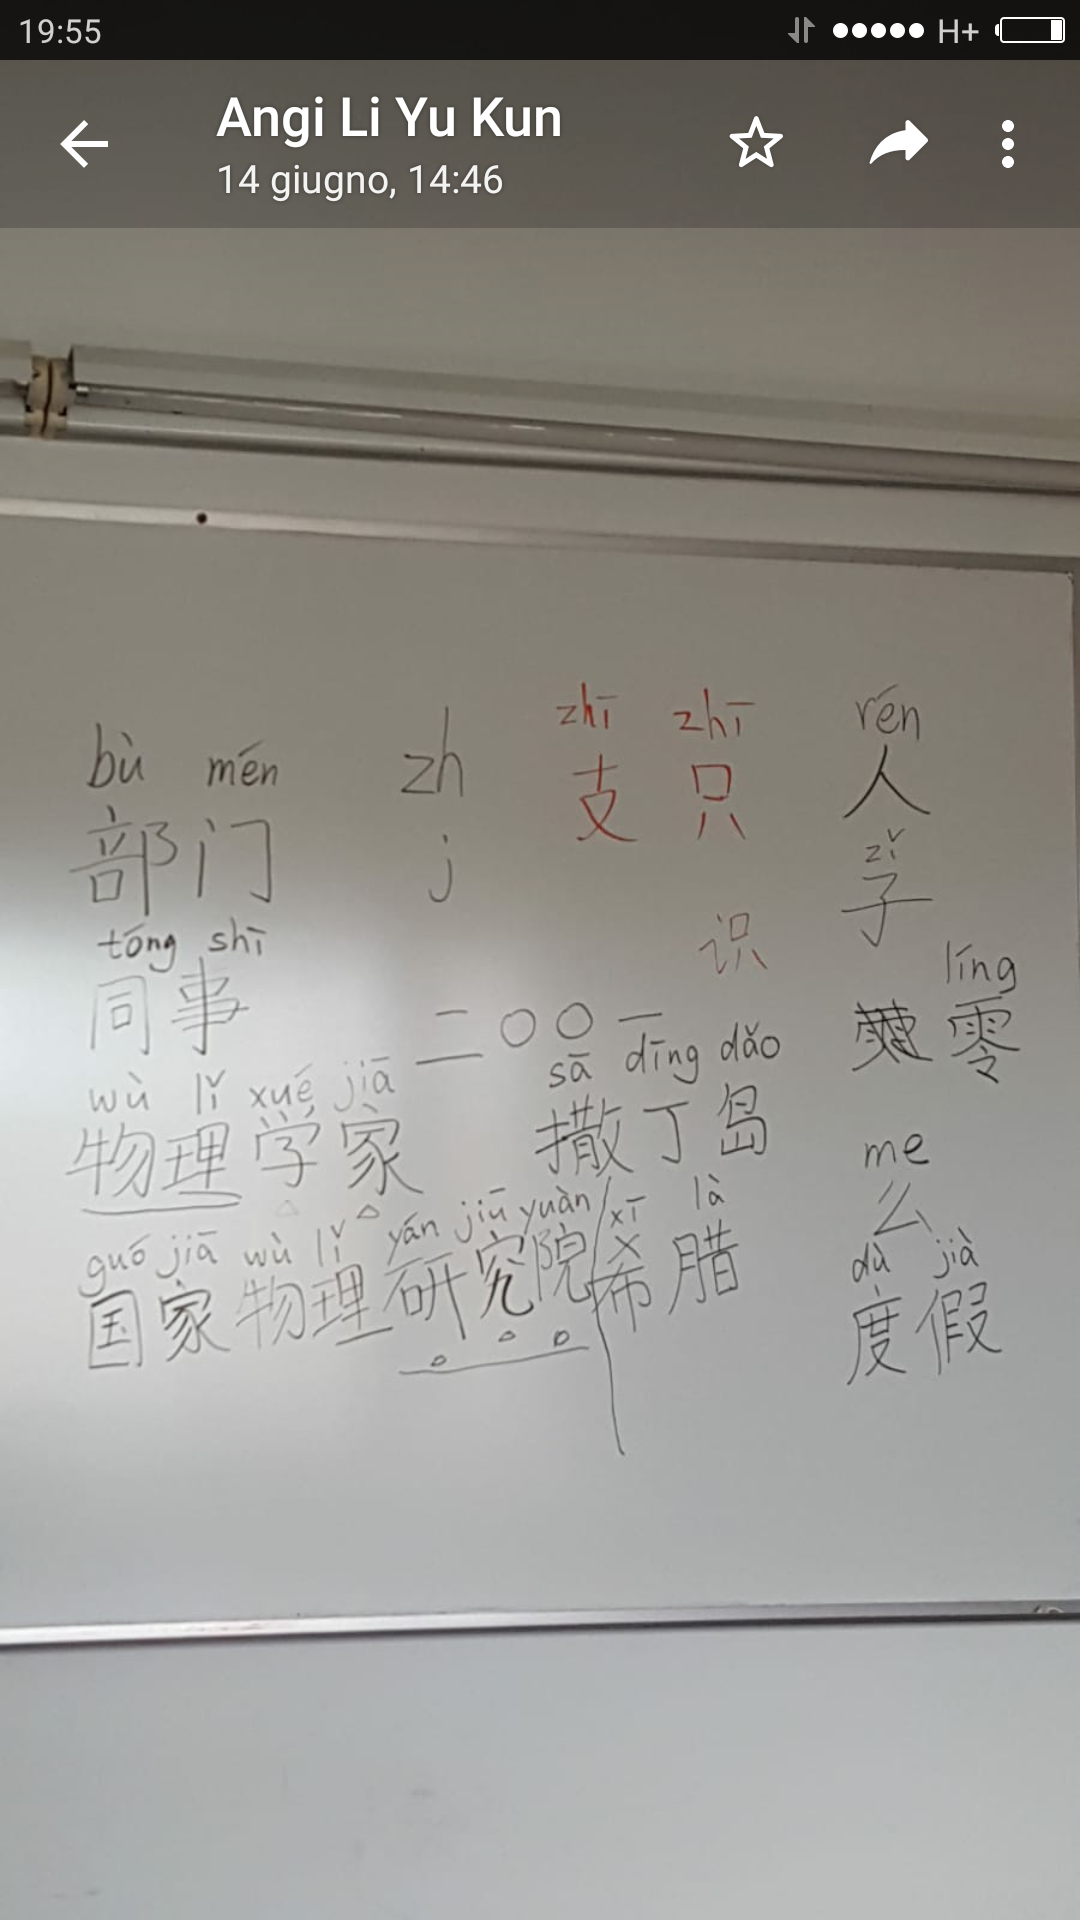 19:55
H+
Angi Li Yu Kun
14 giugno, 14:46
bù mén
部门
zh
j
zhī zhī
支 只
识
rén
人
zǐ
子
líng
零
tóng shī
同事
二〇〇一
wù lǐ xué jiā
物理学家
sā dīng dǎo
撒丁岛
me
么
guó jiā wù lǐ yán jiū yuàn
国家物理研究院
xī là
希腊
dù jià
度假